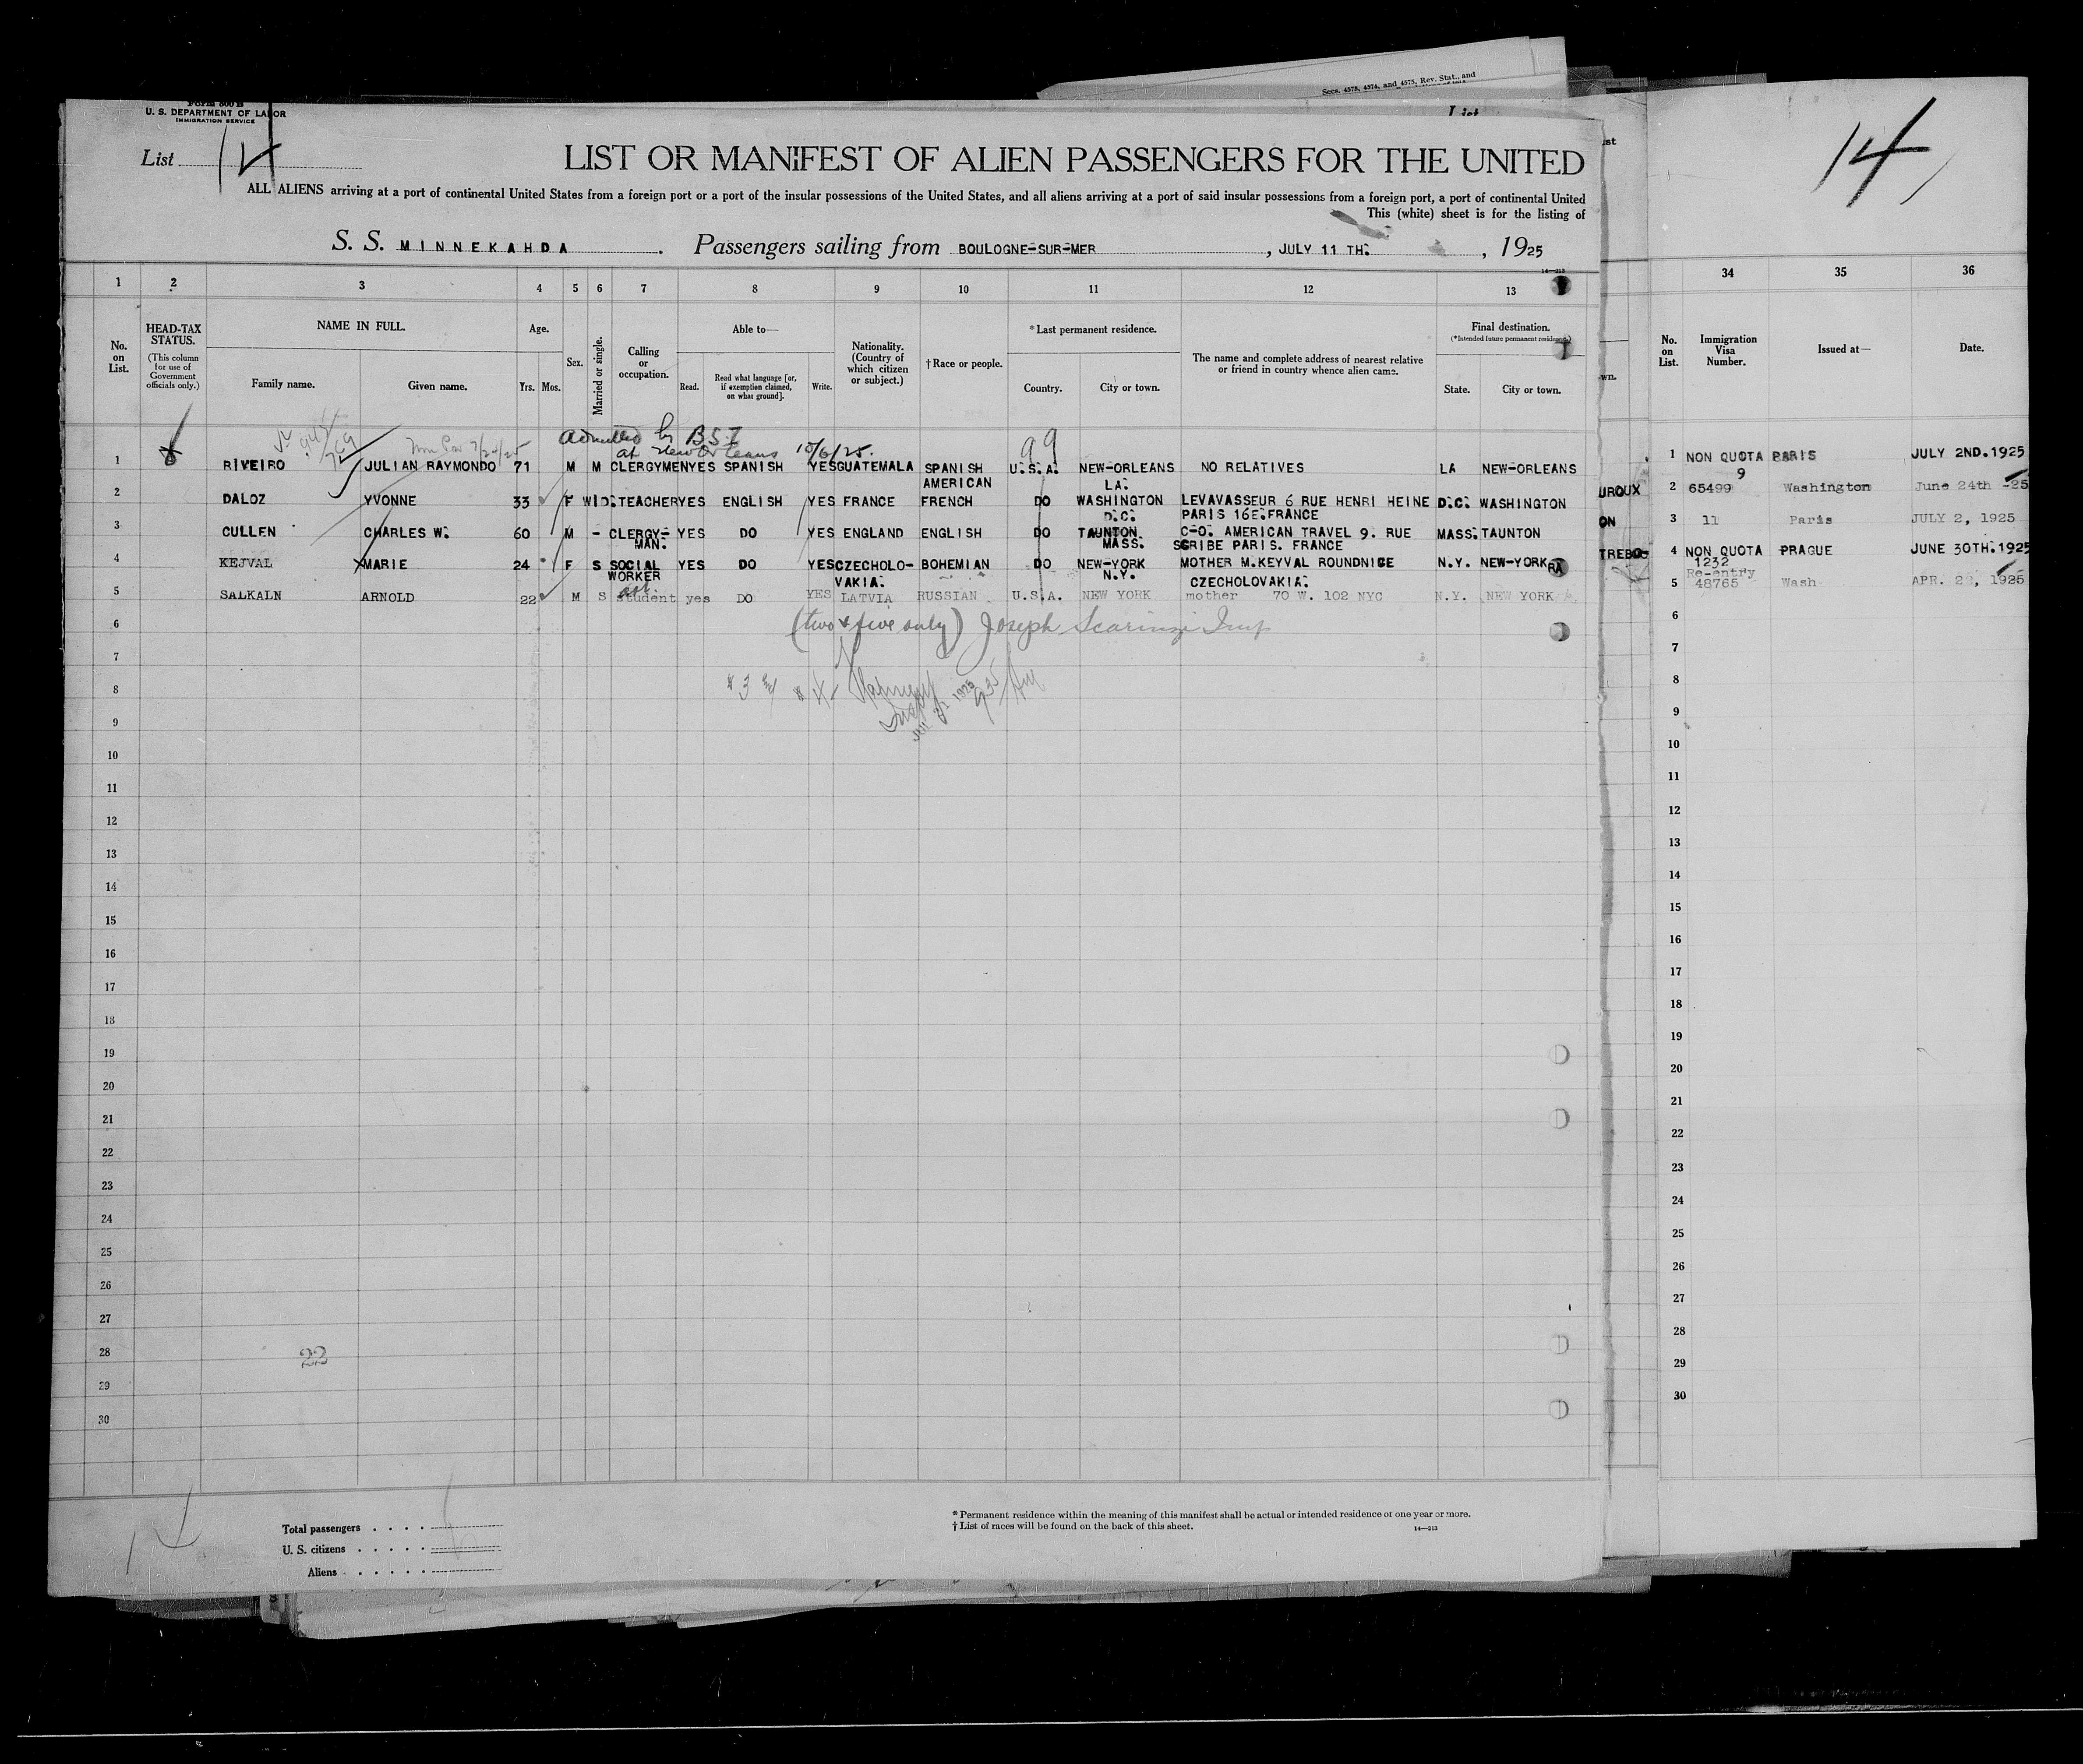 Secs. 4573, 4574, and 4575, Rev. Stat., and
List
U. S. DEPARTMENT OF LABOR
IMMIGRATION SERVICE
List 14
LIST OR MANIFEST OF ALIEN PASSENGERS FOR THE UNITED
ALL ALIENS arriving at a port of continental United States from a foreign port or a port of the insular possessions of the United States, and all aliens arriving at a port of said insular possessions from a foreign port, a port of continental United
This (white) sheet is for the listing of
S. S. MINNEKAHDA. Passengers sailing from BOULOGNE-SUR-MER, JULY 11 TH., 1925
14
1 2 3 4 5 6 7 8 9 10 11 12 13
34 35 36
No. on List.
HEAD-TAX STATUS.
(This column for use of Government officials only.)
NAME IN FULL.
Family name. Given name.
Age.
Yrs. Mos.
Sex.
Married or single.
Calling or occupation.
Able to—
Read. Read what language [or, if exemption claimed, on what ground]. Write.
Nationality. (Country of which citizen or subject.)
†Race or people.
*Last permanent residence.
Country. City or town.
The name and complete address of nearest relative or friend in country whence alien came.
Final destination.
(*Intended future permanent residence.)
State. City or town.
No. on List.
Immigration Visa Number.
Issued at—
Date.
Admitted by BSI
at New Orleans 10/6/25.
99
1 RIVEIRO JULIAN RAYMONDO 71 M M CLERGYMEN YES SPANISH YES GUATEMALA SPANISH AMERICAN U.S.A. NEW-ORLEANS LA. NO RELATIVES LA NEW-ORLEANS
2 DALOZ YVONNE 33 F WID. TEACHER YES ENGLISH YES FRANCE FRENCH DO WASHINGTON D.C. LEVAVASSEUR 6 RUE HENRI HEINE PARIS 16E.FRANCE D.C. WASHINGTON
3 CULLEN CHARLES W. 60 M - CLERGY-MAN. YES DO YES ENGLAND ENGLISH DO TAUNTON MASS. C-O. AMERICAN TRAVEL 9. RUE SCRIBE PARIS. FRANCE MASS. TAUNTON
4 KEJVAL MARIE 24 F S SOCIAL WORKER YES DO YES CZECHOLO-VAKIA. BOHEMIAN DO NEW-YORK N.Y. MOTHER M.KEYVAL ROUNDNICE CZECHOLOVAKIA. N.Y. NEW-YORK
5 SALKALN ARNOLD 22 M S art student yes DO YES LATVIA RUSSIAN U.S.A. NEW YORK mother 70 W. 102 NYC N.Y. NEW YORK
1 NON QUOTA 9 PARIS JULY 2ND.1925
2 65499 Washington June 24th -25
3 11 Paris JULY 2, 1925
4 NON QUOTA 1232 PRAGUE JUNE 30TH.1925
5 Re-entry 48765 Wash APR. 2 , 1925
UROUX
ON
TREBO-
(two & five only) Joseph Scarinzi Insp
6
7
8
9
10
11
12
13
14
15
16
17
18
19
20
21
22
23
24
25
26
27
28
29
30
22
Total passengers
U. S. citizens
Aliens
* Permanent residence within the meaning of this manifest shall be actual or intended residence of one year or more.
† List of races will be found on the back of this sheet.
14—213